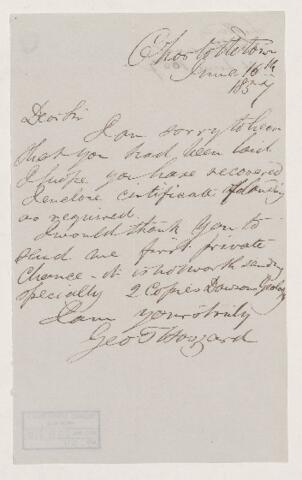 Charlottetown
June 16th
1857
Dear Sir
I am sorry to hear
that you had been laid
I hope you have recovered
I enclose certificate of
as required.
I would thank you to
send me first private
chance - it is not worth sending
specially 2 Copies Dawsons Geology
I am yours truly
Geo T Haszard